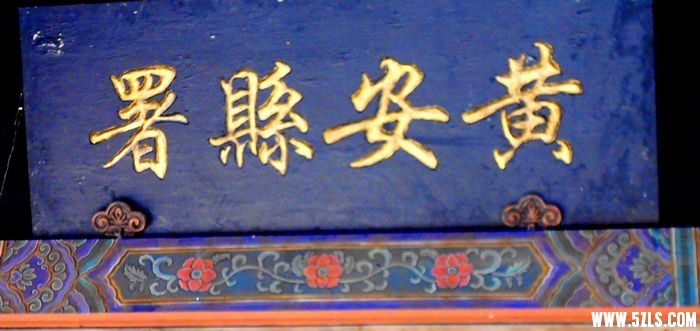 黄安縣署
WWW.5ZLS.COM